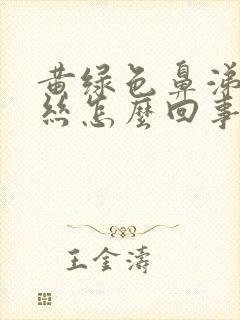 黄绿色鼻涕
丝怎麼回事
王金濤